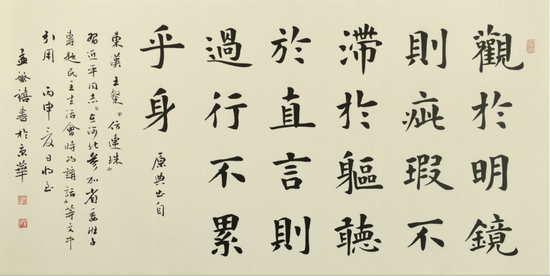 觀於明鏡
則疵瑕不
滯於軀聽
於直言則
過行不累
乎身 原典出自
東漢王粲《仿連珠》
習近平同志在河北參加省委班子
專題民主生活會時的講話等文中
引用 丙申夏日
孟繁禧書於京華